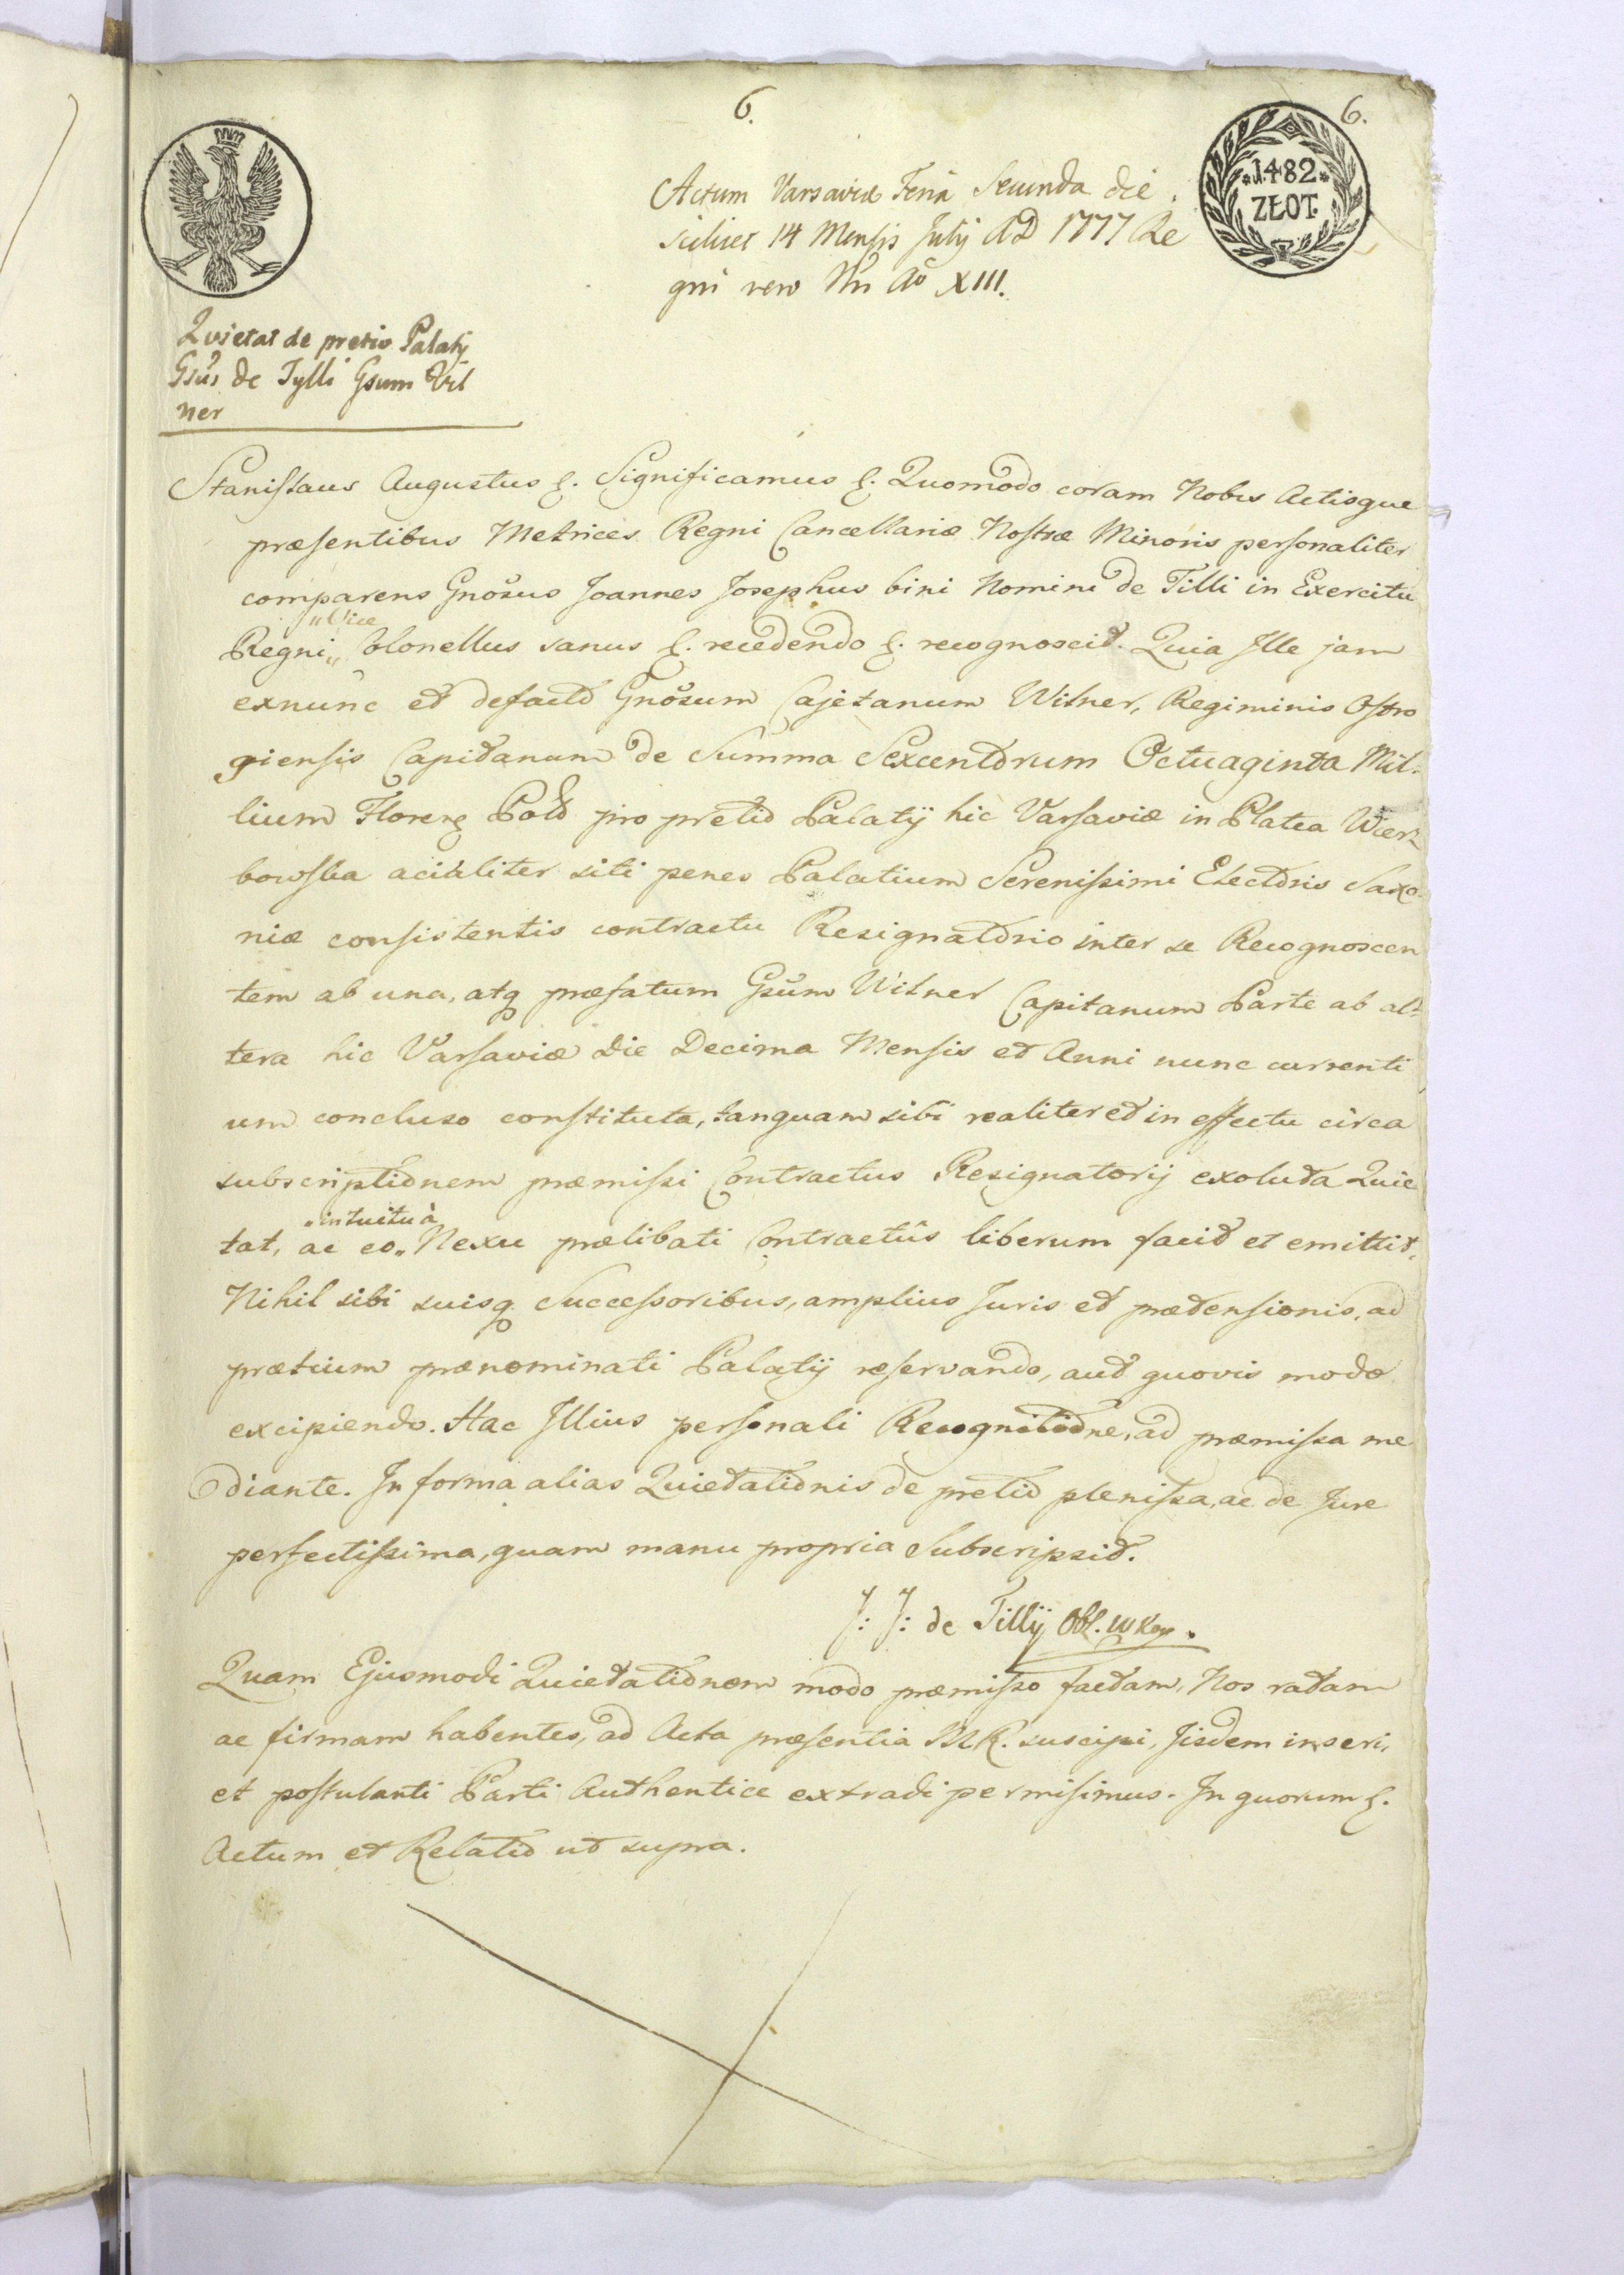 6.
6.
Actum Varsaviæ Feria Secunda die
scilicet 14 Mensis July AD 1777 Re
gni vero Nri Ao XIII.
*1482*
ZŁOT.
Quietat de pretio Palatij
Gsus de Tylli Gsum Vit
ner
Stanislaus Augustus &. Significamus &. Quomodo coram Nobis Actisque
præsentibus Metrices Regni Cancellariæ Nostræ Minoris personaliter
comparens Gnosus Joannes Josephus bini Nomini de Tilli in Exercitu
"Vice
Regni,, Colonellus sanus &. recedendo &. recognoscit. Quia Ille jam
exnunc et defacto Gnosum Cajetanum Witner, Regiminis Ostro
giensis Capitanum de Summa Sexcentorum Octuaginta Mil-
lium Floren Pold pro pretio Palatij hic Varsaviæ in Platea Wierz
bowska acialiter siti penes Palatium Serenissimi Electoris Saxo-
niæ consistentis contractu Resignatorio inter se Recognoscen
tem ab una, atq præfatum Gsum Witner Capitanum Parte ab al-
tera hic Varsaviæ Die Decima Mensis et Anni nunc currenti
um concluso constituta, tanquam sibi realiter et in effectu circa
subscriptionem præmissi Contractus Resignatorij exoluta Quie
"intuitu à
tat, ac eo,, Nexu prælibati Contractûs liberum facit et emittit,
Nihil sibi suisq Successoribus, amplius Juris et prætensionis, ad
prætium prænominati Palatij reservando, aut quovis modo
excipiendo. Hac Illius personali Recognitione, ad præmissa me
diante. In forma alias Quietationis de pretio plenissa, ac de Jure
perfectissima, quam manu propria Subscripsit.
J: J: de Tillÿ Obl.
Quam Ejusmodi Quietationem modo præmisso factam, Nos ratam
ac firmam habentes, ad Acta præsentia M.R. suscipi, Iisdem inseri,
et postulanti Parti Authentice extradi permisimus. In quorum &.
Actum et Relatio ut supra.